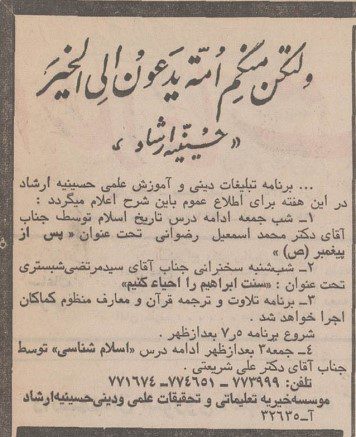 ولتکن منکم امة یدعون الی الخیر
«حسینیه ارشاد»
... برنامه تبلیغات دینی و آموزش علمی حسینیه ارشاد
در این هفته برای اطلاع عموم باین شرح اعلام میگردد :
۱ـ شب جمعه ادامه درس تاریخ اسلام توسط جناب
آقای دکتر محمد اسمعیل رضوانی تحت عنوان « پس از
پیغمبر (ص) »
۲ـ شب‌شنبه سخنرانی جناب آقای سیدمرتضی‌شبستری
تحت عنوان : «سنت ابراهیم را احیاء کنیم»
۳ـ برنامه تلاوت و ترجمه قرآن و معارف منظوم کماکان
اجرا خواهد شد .
شروع برنامه ۷٫۵ بعدازظهر .
۴ـ جمعه۳ بعدازظهر ادامه درس «اسلام شناسی» توسط
جناب آقای دکتر علی شریعتی .
تلفن: ۷۷۳۹۹۹ ـ ۷۷۴۶۵۱ ـ ۷۷۱۶۷۴
موسسه‌خیریه تعلیماتی و تحقیقات علمی ودینی‌حسینیه‌ارشاد
آـ۳۲۶۳۵